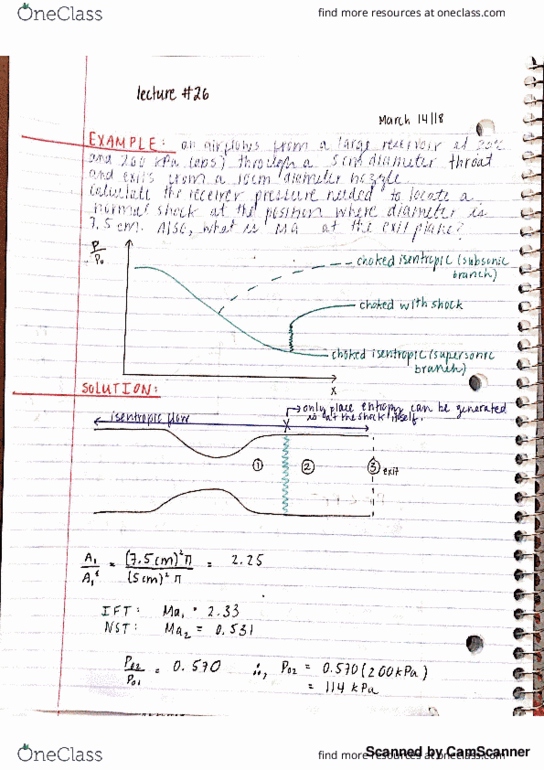 OneClass
find more resources at oneclass.com
lecture #26
March 14/18
EXAMPLE: an airflows from a large reservoir at 30°C
and 200 kPa (abs) through a 5cm diameter throat
and exits from a 10cm diameter nozzle
calculate the receiver pressure needed to locate a
normal shock at the position where diameter is
7.5 cm. Also, what is Ma at the exit plane?
P/P₀
choked isentropic (subsonic
branch)
choked with shock
choked isentropic (supersonic
branch)
x
SOLUTION:
only place entropy can be generated
is at the shock itself.
isentropic flow
① ② ③ exit
A₁/A₁* = (7.5cm)²π/(5cm)²π = 2.25
IFT: Ma₁ = 2.33
NST: Ma₂ = 0.531
P₀₂/P₀₁ = 0.570 ∴, P₀₂ = 0.570(200kPa)
= 114 kPa
Scanned by CamScanner
OneClass
find more resources at oneclass.com